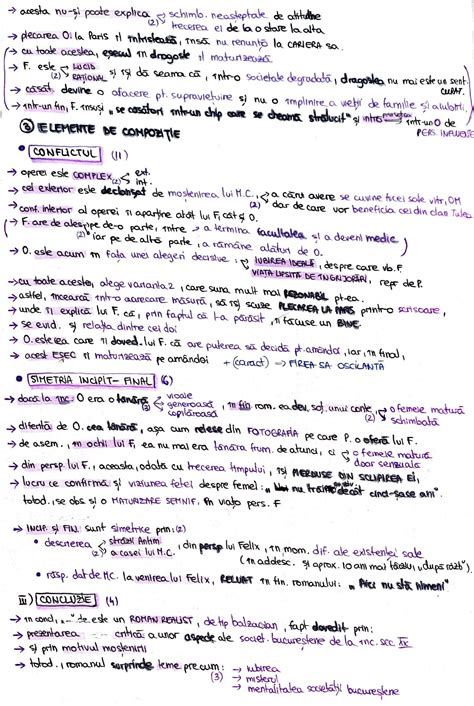 → acesta nu-și poate explica (2) → schimb. neașteptate de atitudine
→ trecerea ei de la o stare la alta
→ plecarea O. la Paris îl întristează, însă nu renunță la CARIERA sa.
→ cu toate acestea, eșecul în dragoste îl maturizează
→ F. este → LUCID
→ RAȚIONAL și își dă seama că, într-o societate degradată, dragostea nu mai este un sent. CURAT.
→ căsăt. devine o afacere pt supraviețuire și nu o împlinire a vieții de familie și a iubirii.
→ într-un fin, F. însuși „se căsători într-un chip care se cheamă strălucit" și intră prin într-un O de PERS. INFLUENTE
③ ELEMENTE DE COMPOZIȚIE
• CONFLICTUL (11)
→ operei este COMPLEX (2) → ext.
→ int.
→ cel exterior este declanșat de moștenirea lui M.C., (2) → a cărui avere se cuvine fiicei sale vitr, OM
→ dar de care vor beneficia cei din clas Tulea
→ conf. interior al operei îi aparține atât lui F, cât și O.
→ F. are de ales, pe de-o parte, între → a termina facultatea și a deveni medic
(2) iar pe de altă parte, a rămâne alături de O.
→ O. este acum în fața unei alegeri decisive: → IUBIREA IDEALĂ, despre care vb. F
→ VIAȚA LIPSITĂ DE ÎNGRIJORĂRI, repr de P.
→ cu toate acestea, alege varianta 2, care suna mult mai REZONABIL pt-ea.
→ astfel, încearcă într-o oarecare măsură, să își scuze PLECAREA LA PARIS printr-o scrisoare,
→ unde îi explică lui F. că, prin faptul că l-a părăsit, îi făcuse un BINE.
→ se evid. și relația dintre cei doi
→ O. este cea care îi doved. lui F. că are puterea să decidă pt. amândoi, iar, în final,
→ acest EȘEC îi maturizează pe amândoi + (caract) → FIREA SA OSCILANTĂ
• SIMETRIA INCIPIT-FINAL (6)
→ dacă la înc. O era o tânără (3) → vioaie
→ generoasă
→ copilăroasă , în fin rom. ea dev. soț. unui conte, (2) → o femeie matură
→ schimbată
→ diferită de O. cea tânără, așa cum reiese din FOTOGRAFIA pe care P. o oferă lui F.
→ de asem., în ochii lui F, ea nu mai era tânăra frum. de atunci, ci → o femeie matură
→ doar senzuală
→ din persp lui F., aceasta, odată cu trecerea timpului, își PIERDUSE DIN SCLIPIREA EI,
→ lucru ce confirmă și viziunea fetei despre femei: „Noi nu trăim decât cinci-șase ani".
totod., se obs și o MATURIZARE SEMNIF. în viața pers. F
→ INCIP. ȘI FIN. sunt simetrice prin: (2)
• descrierea → străzii Antim
→ a casei lui M.C. , din persp lui Felix, în mom. dif. ale existenței sale
(în adolesc. și aprox. 10 ani mai târziu, „după război").
• răsp. dat de M.C. la venirea lui Felix, RELUAT în fin. romanului: „Aici nu stă nimeni"
III) CONCLUZIE (4)
→ în concl., „..." de este un ROMAN REALIST, de tip balzacian, fapt dovedit prin:
→ prezentarea critică a unor aspecte ale societ. bucureștene de la înc. sec. XX
→ și prin motivul moștenirii
→ totod., romanul surprinde teme precum: (3) → iubirea
→ misterul
→ mentalitatea societății bucureștene